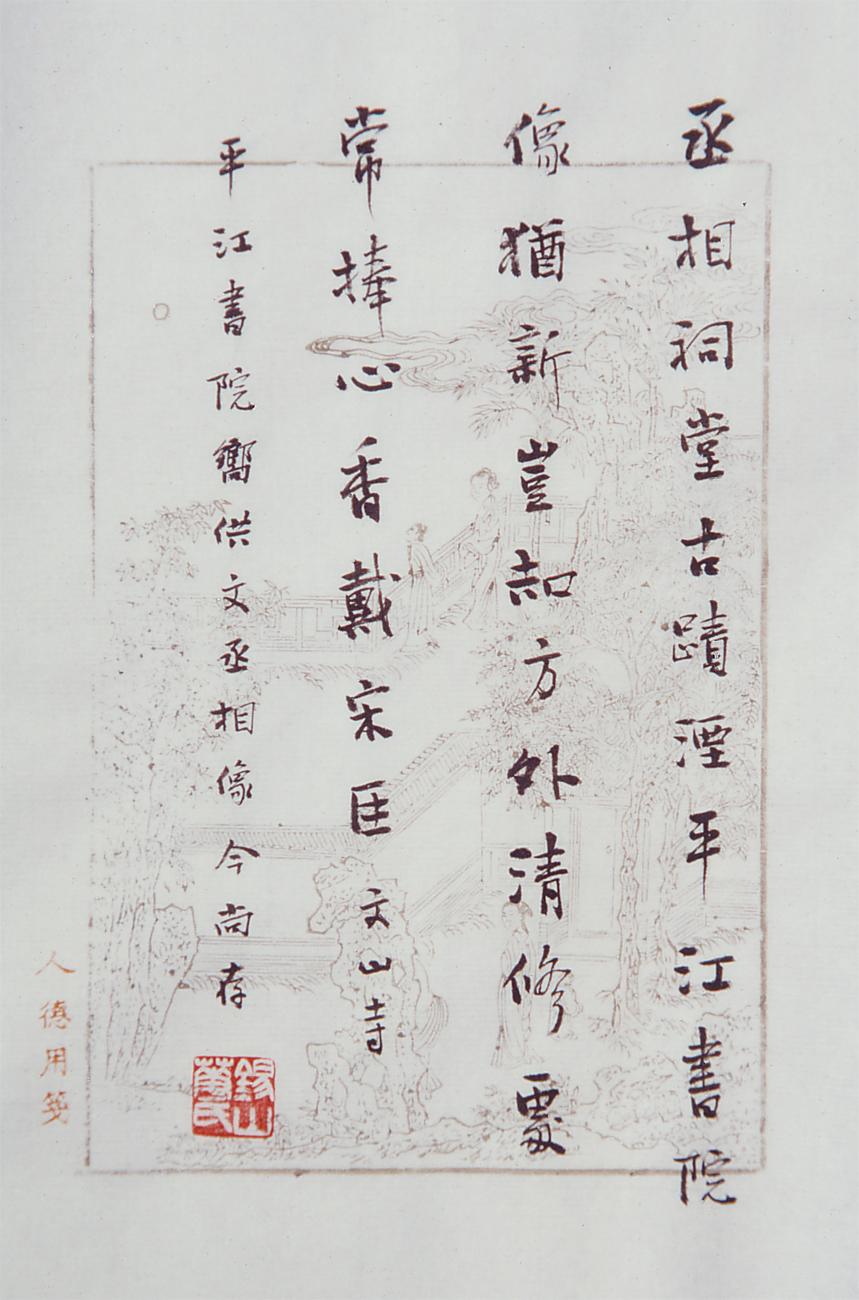 丞相祠堂古蹟湮平江書院
像猶新豈知方外清修處
常捧心香戴宋臣 文山寺
平江書院嚮供文丞相像今尚存
錫山
華氏
人德用箋